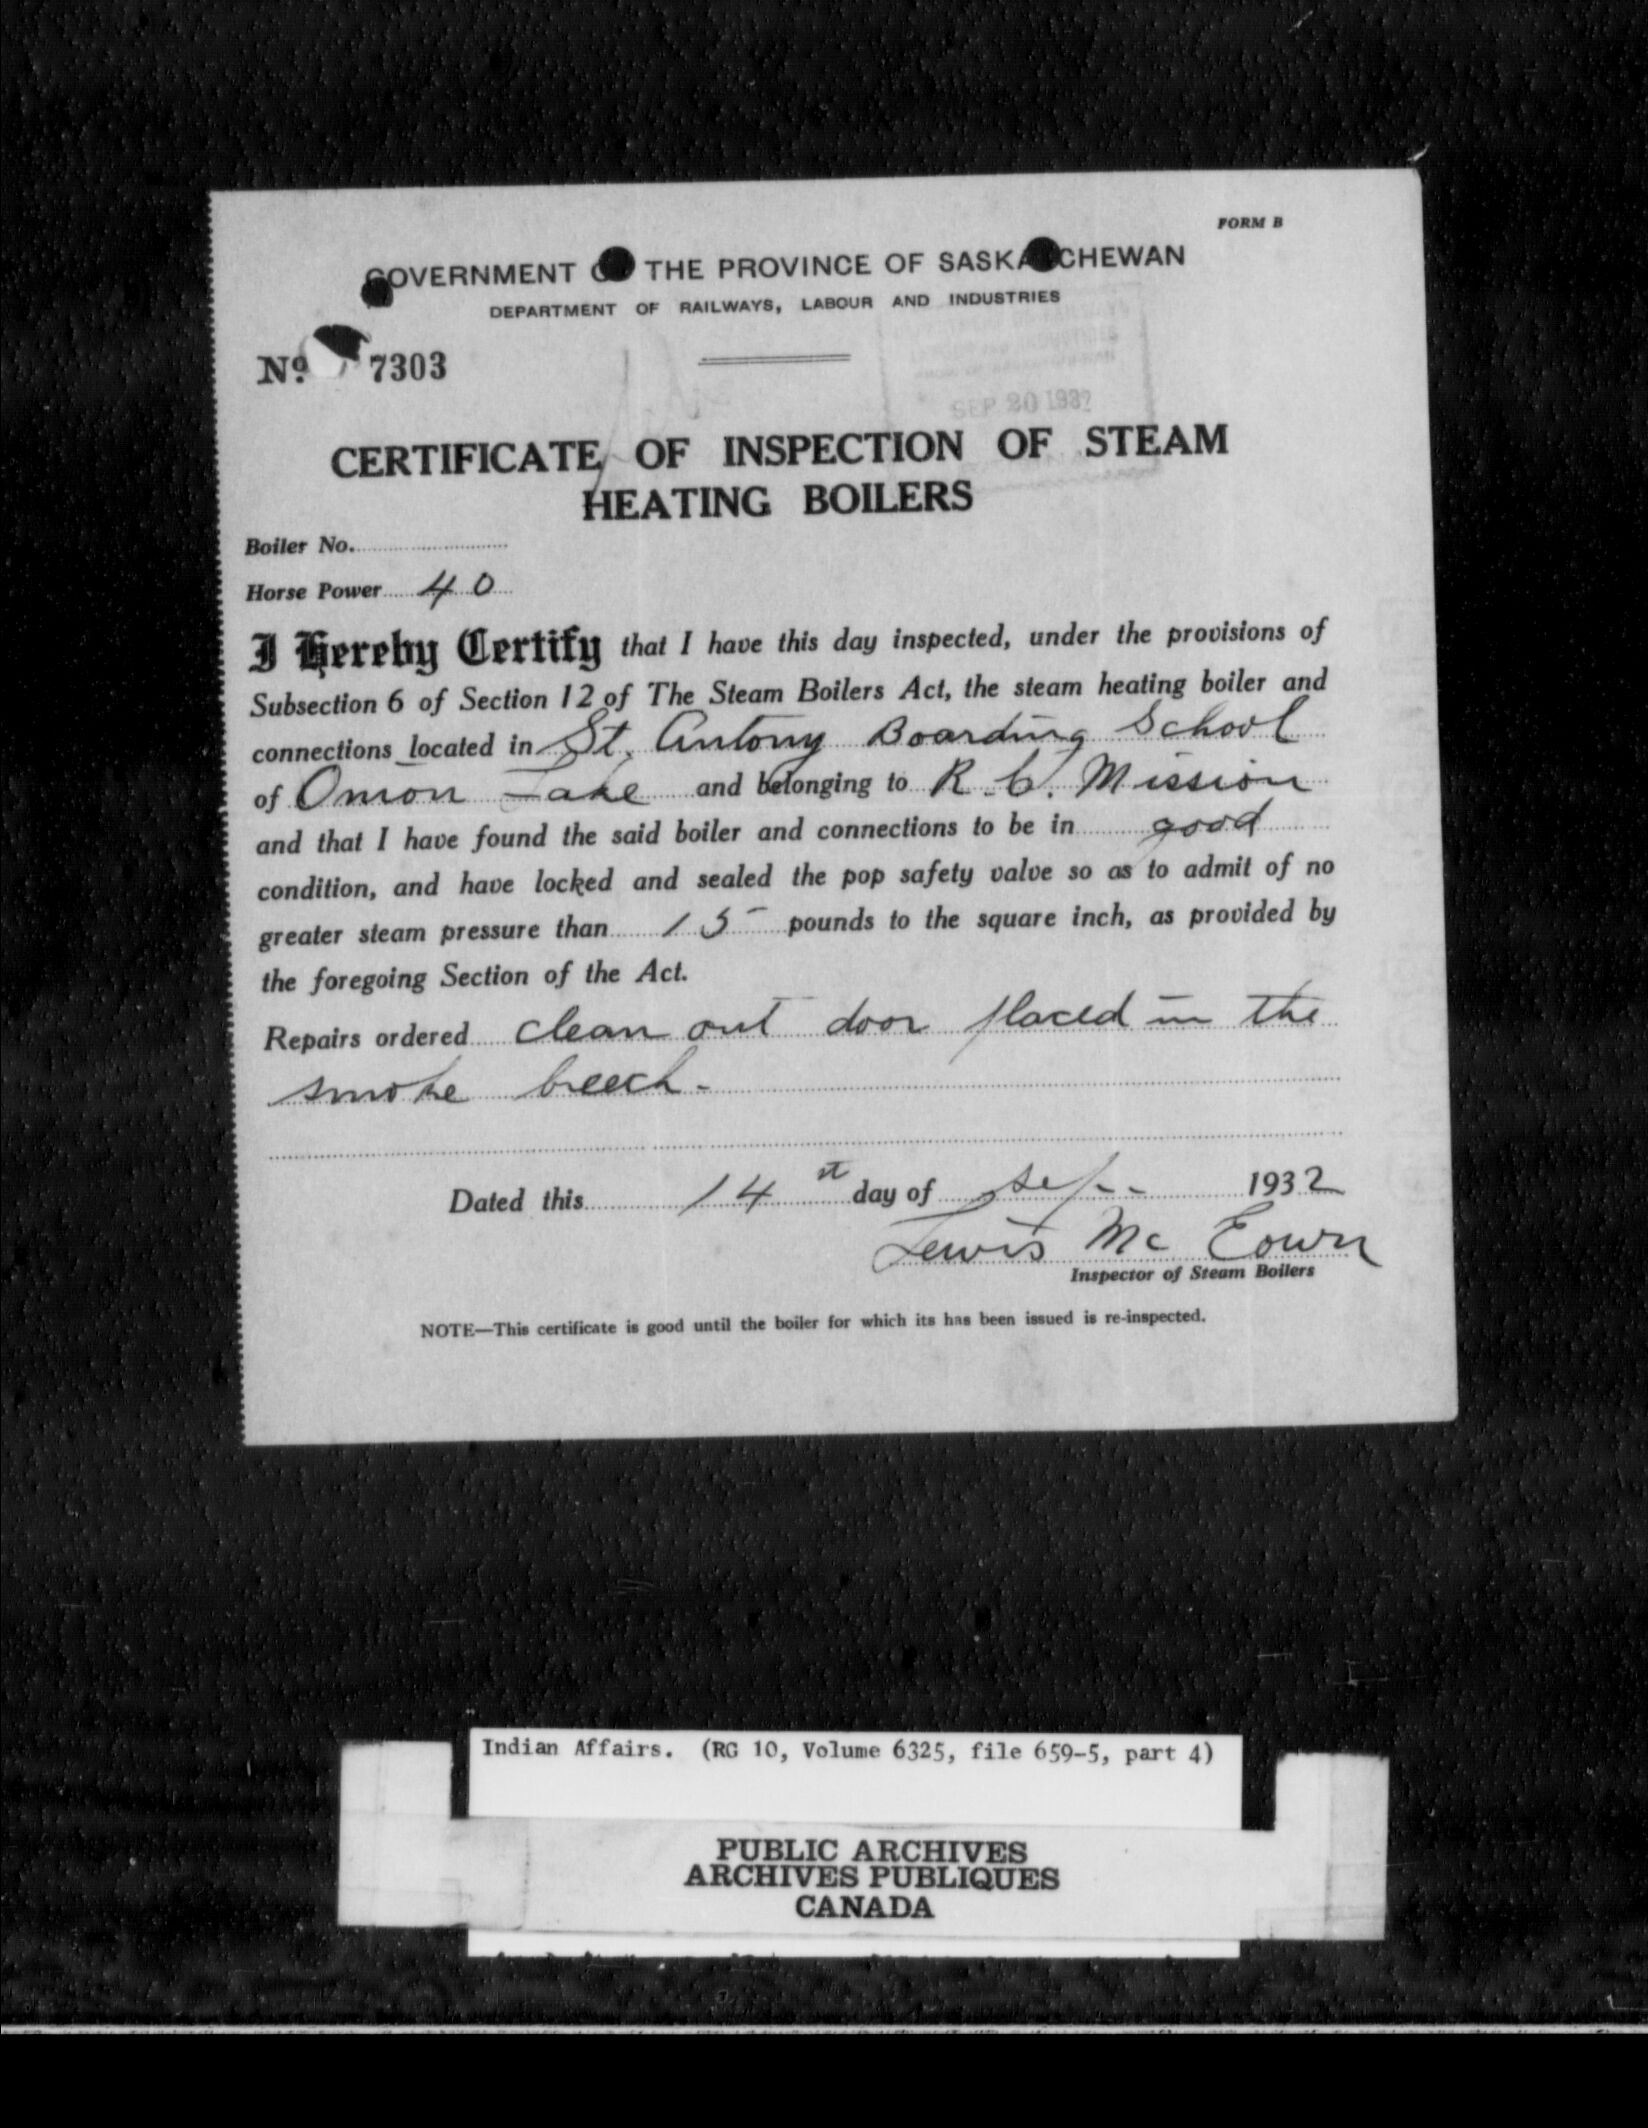 FORM B
GOVERNMENT OF THE PROVINCE OF SASKATCHEWAN
DEPARTMENT OF RAILWAYS, LABOUR AND INDUSTRIES
No. 7303
SEP 20 1932
CERTIFICATE OF INSPECTION OF STEAM
HEATING BOILERS
Boiler No.
Horse Power 40
I Hereby Certify that I have this day inspected, under the provisions of
Subsection 6 of Section 12 of The Steam Boilers Act, the steam heating boiler and
connections located in St. Antony Boarding School
of Onion Lake and belonging to R. C. Mission
and that I have found the said boiler and connections to be in good
condition, and have locked and sealed the pop safety valve so as to admit of no
greater steam pressure than 15 pounds to the square inch, as provided by
the foregoing Section of the Act.
Repairs ordered clean out door placed in the
smoke breech.
Dated this 14 st day of Sep. 1932
Lewis Mc Eown
Inspector of Steam Boilers
NOTE—This certificate is good until the boiler for which its has been issued is re-inspected.
Indian Affairs. (RG 10, Volume 6325, file 659-5, part 4)
PUBLIC ARCHIVES
ARCHIVES PUBLIQUES
CANADA